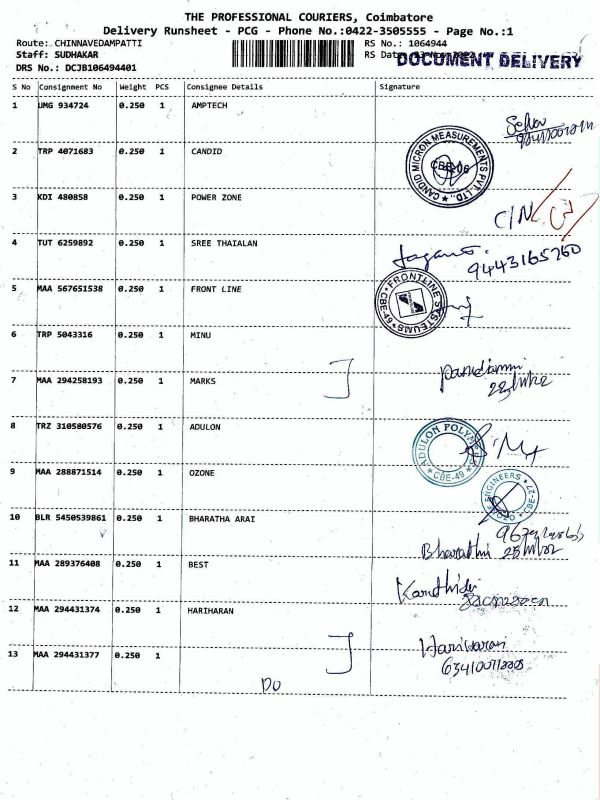 THE PROFESSIONAL COURIERS, Coimbatore
Delivery Runsheet - PCG - Phone No.:0422-3505555 - Page No.:1
Route: CHINNAVEDAMPATTI RS No.: 1064944
Staff: SUDHAKAR RS Date
DOCUMENT DELIVERY
DRS No.: DCJB106494401
S No Consignment No Weight PCS Consignee Details Signature
1 UMG 934724 0.250 1 AMPTECH
2 TRP 4071683 0.250 1 CANDID
CANDID MICRON MEASUREMENTS PVT. LTD., CBE-06
3 KDI 480858 0.250 1 POWER ZONE
C/N
4 TUT 6259892 0.250 1 SREE THAIALAN
9443165260
5 MAA 567651538 0.250 1 FRONT LINE
FRONTLINE SYSTEUMS CBE-49
6 TRP 5043316 0.250 1 MINU
7 MAA 294258193 0.250 1 MARKS
8 TRZ 310580576 0.250 1 ADULON
ADULON POLYME CBE-49
9 MAA 288871514 0.250 1 OZONE
ENGINEERS
10 BLR 5450539861 0.250 1 BHARATHA ARAI
Bharathi
11 MAA 289376408 0.250 1 BEST
12 MAA 294431374 0.250 1 HARIHARAN
Hariharan
13 MAA 294431377 0.250 1
DO